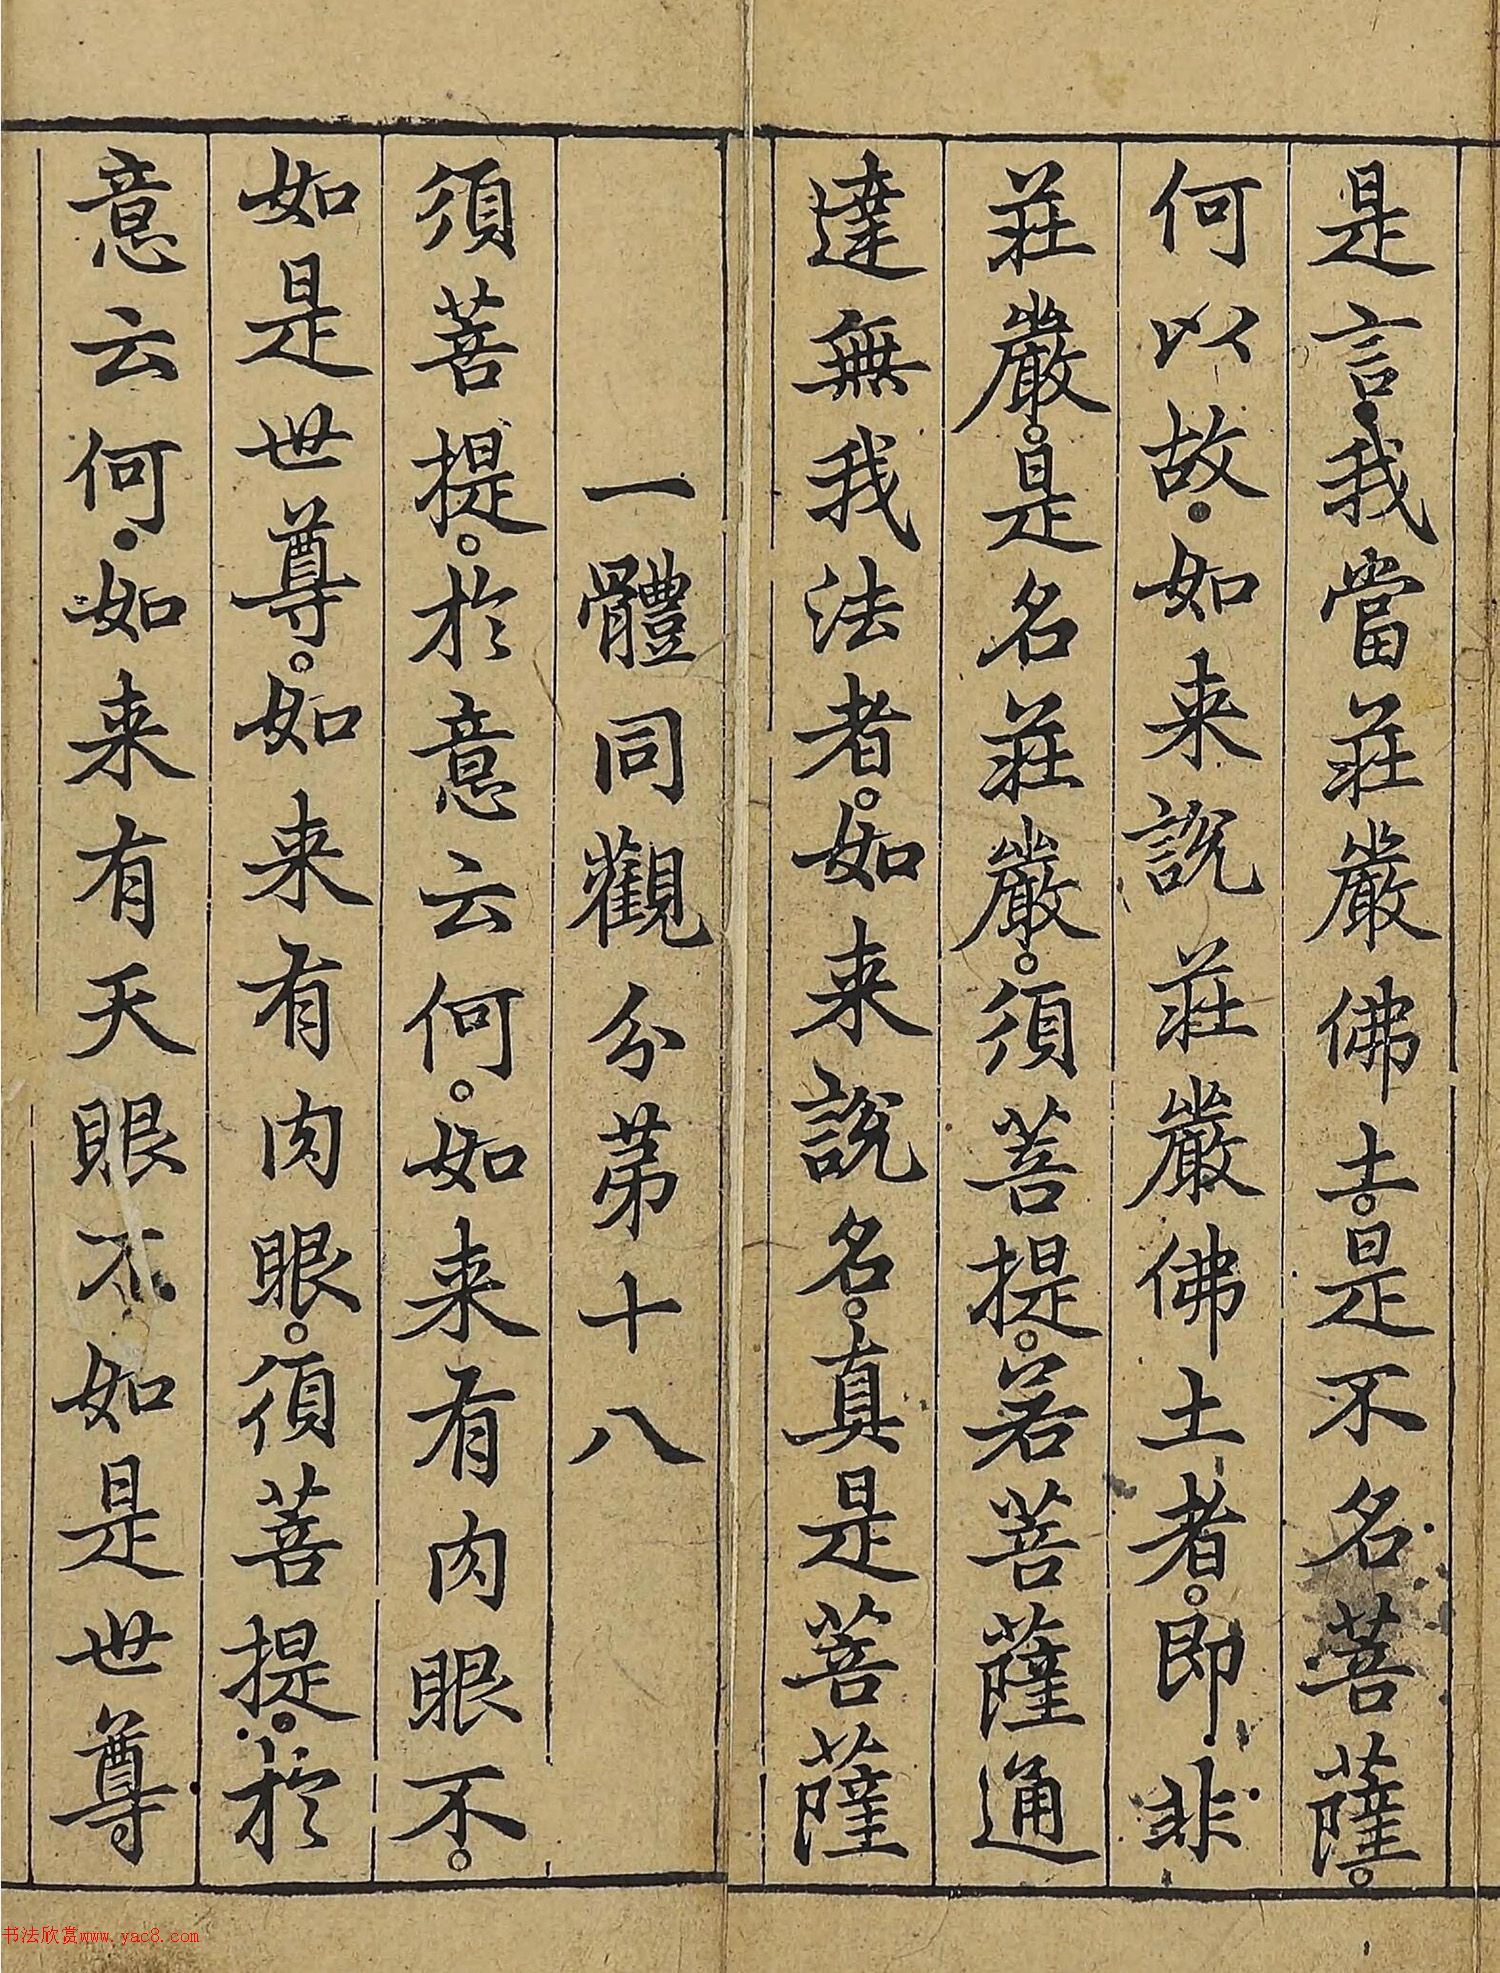 是言我當莊嚴佛土。是不名菩薩。
何以故如来說莊嚴佛土者。即非
莊嚴。是名莊嚴。須菩提。若菩薩通
達無我法者。如来說名。真是菩薩
一體同觀分苐十八
須菩提。於意云何。如来有肉眼不。
如是世尊。如来有肉眼。須菩提。於
意云何如来有天眼不如是世尊
书法欣赏www.yac8.com